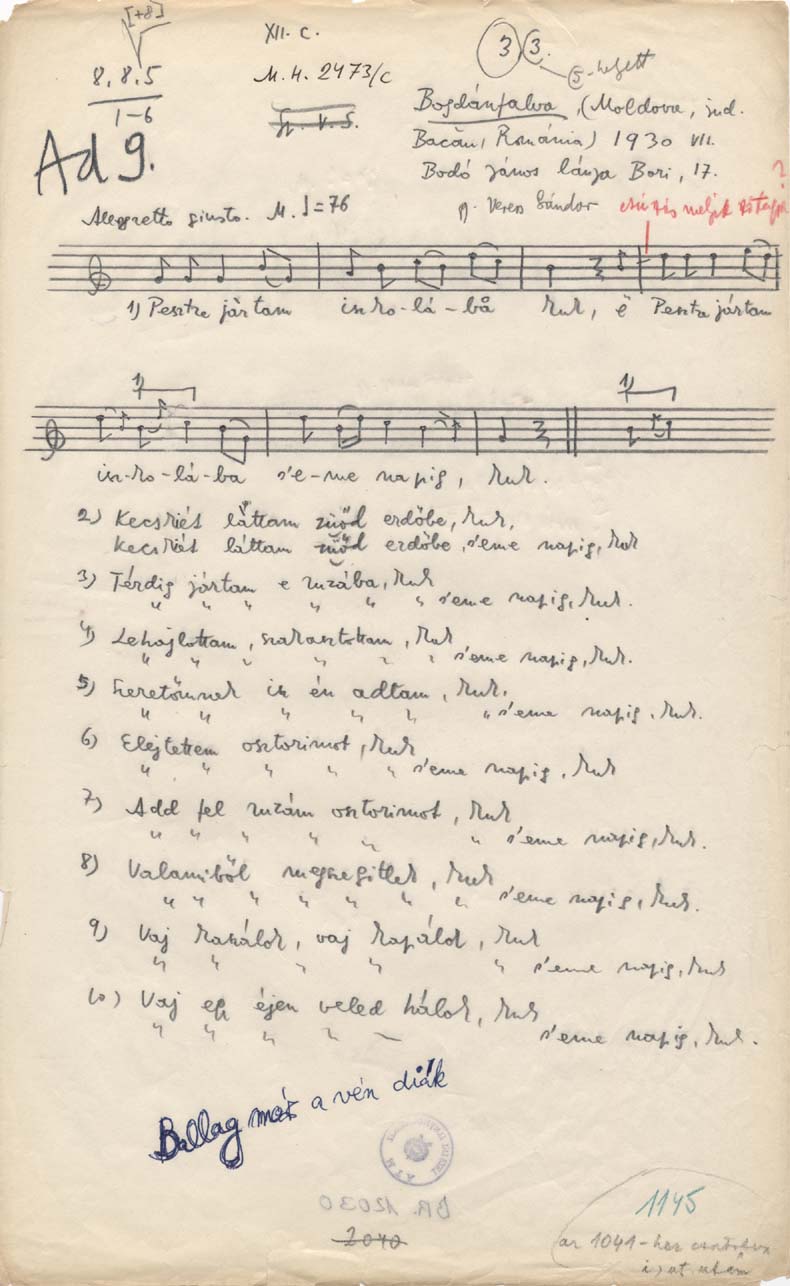 [+8]
XII. c.
8, 8, 5
1-6
M. H. 2473/c
3 3.
5 - helyett
Bogdánfalva, (Moldova, jud.
Bacău, Románia) 1930 VII.
Bodó János lánya Bori, 17.
Ad 9.
Allegretto giusto. M. ♩=76
gy. Veress Sándor
?
1) Pesztre jártam isz-ko-lá-bå kuk, ĕ Pesztre jártam
1)
1)
isz-ko-lá-ba s'e-me napig, kuk.
2) Kecskiét láttam züöd erdőbe, kuk,
kecskiét láttam züöd erdőbe, s'eme napig, kuk
3) Térdig jártam e ruzába, kuk
" " " " " " s'eme napig, kuk.
4) Lehajlottam, szakasztottam, kuk
" " " " " " s'eme napig, kuk.
5) Szeretőmnek is én adtam, kuk.
" " " " " " s'eme napig, kuk.
6) Elejtettem osztorimot, kuk
" " " " " s'eme napig, kuk
7) Add fel ruzám osztorimot, kuk
" " " " " " s'eme napig, kuk.
8) Valamiből megsegitlek, kuk
" " " " " " " s'eme napig, kuk.
9) Vaj kaszálok, vaj kapálok, kuk
" " " " " s'eme napig, kuk
10) Vaj egy éjen veled hálok, kuk
" " " " s'eme napig, kuk.
Ballag már a vén diák
BR. 12030
2040
1145
az 1041-hez csatolva